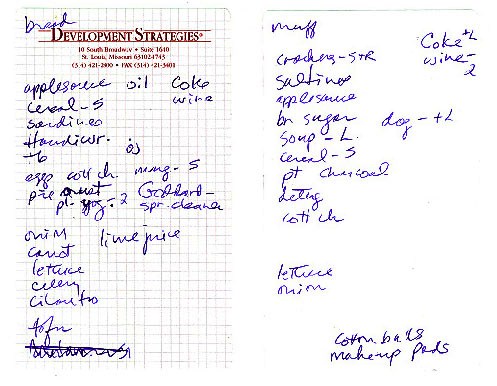 bread
DEVELOPMENT STRATEGIES®
10 South Broadway • Suite 1640
St. Louis, Missouri 63102-1743
(314) 421-2800 • FAX (314) 421-3401
applesauce oil Coke
cereal - S wine
sardines
+6 oj
eggs cott ch. marg - S
pie Goddard -
pl. yog - 2 spr. cleaner
onion lime juice
carrot
lettuce
celery
cilantro
tofu
muff
Coke + L
crackers - S+R wine -
saltines 2
applesauce
br sugar dog - + L
soup - L
cereal - S
pt charcoal
deterg
cott ch
lettuce
onion
cotton balls
makeup pads